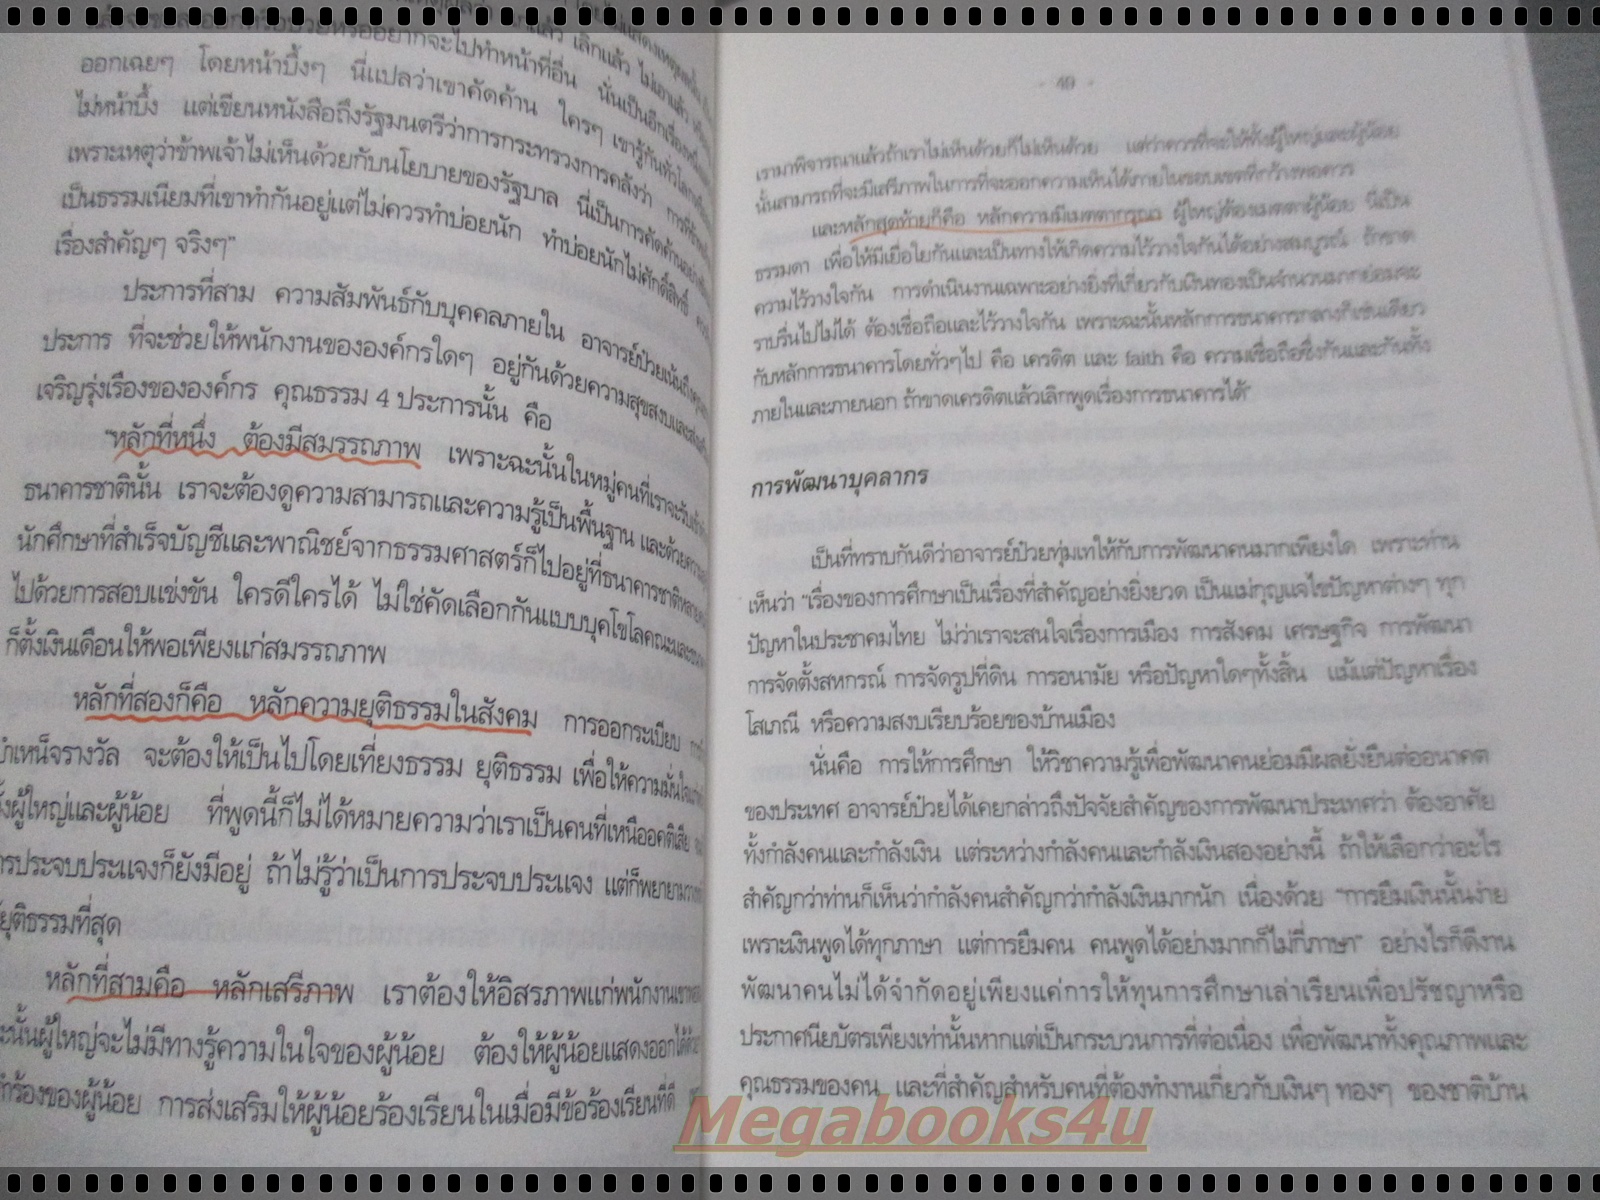 ออกเฉยๆ โดยหน้าบึ้งๆ นี่แปลว่าเขาคัดค้าน ใครๆ เขารู้กันทั่วโลก
ไม่หน้าบึ้ง แต่เขียนหนังสือถึงรัฐมนตรีว่าการกระทรวงการคลังว่า
เพราะเหตุว่าข้าพเจ้าไม่เห็นด้วยกับนโยบายของรัฐบาล นี่เป็นการคัดค้านอย่าง
เป็นธรรมเนียมที่เขาทำกันอยู่แต่ไม่ควรทำบ่อยนัก ทำบ่อยนักไม่ศักดิ์สิทธิ์
เรื่องสำคัญๆ จริงๆ”
ประการที่สาม ความสัมพันธ์กับบุคคลภายใน อาจารย์ป๋วยเน้นถึง
ประการ ที่จะช่วยให้พนักงานขององค์กรใดๆ อยู่กันด้วยความสุขสงบและ
เจริญรุ่งเรืองขององค์กร คุณธรรม 4 ประการนั้น คือ
“หลักที่หนึ่ง ต้องมีสมรรถภาพ เพราะฉะนั้นในหมู่คนที่เราจะรับเข้า
ธนาคารชาตินั้น เราจะต้องดูความสามารถและความรู้เป็นพื้นฐาน และด้วย
นักศึกษาที่สำเร็จบัญชีและพาณิชย์จากธรรมศาสตร์ก็ไปอยู่ที่ธนาคารชาติ
ไปด้วยการสอบแข่งขัน ใครดีใครได้ ไม่ใช่คัดเลือกกันแบบบุคโขโลคณะและ
ก็ตั้งเงินเดือนให้พอเพียงแก่สมรรถภาพ
หลักที่สองก็คือ หลักความยุติธรรมในสังคม การออกระเบียบ
บำเหน็จรางวัล จะต้องให้เป็นไปโดยเที่ยงธรรม ยุติธรรม เพื่อให้ความมั่นใจ
ผู้ใหญ่และผู้น้อย ที่พูดนี้ก็ไม่ได้หมายความว่าเราเป็นคนที่เหนืออคติเสีย
การประจบประแจงก็ยังมีอยู่ ถ้าไม่รู้ว่าเป็นการประจบประแจง แต่ก็พยายาม
ยุติธรรมที่สุด
หลักที่สามคือ หลักเสรีภาพ เราต้องให้อิสรภาพแก่พนักงาน
ฉะนั้นผู้ใหญ่จะไม่มีทางรู้ความในใจของผู้น้อย ต้องให้ผู้น้อยแสดงออกได้
ร้องของผู้น้อย การส่งเสริมให้ผู้น้อยร้องเรียนในเมื่อมีข้อร้องเรียนที่ดี
เรามาพิจารณาแล้วถ้าเราไม่เห็นด้วยก็ไม่เห็นด้วย แต่ว่าควรที่จะให้ทั้งผู้ใหญ่และผู้น้อย
นั้นสามารถที่จะมีเสรีภาพในการที่จะออกความเห็นได้ภายในขอบเขตที่กว้างพอควร
และหลักสุดท้ายก็คือ หลักความมีเมตตากรุณา ผู้ใหญ่ต้องเมตตาผู้น้อย นี่เป็น
ธรรมดา เพื่อให้มีเยื่อใยกันและเป็นทางให้เกิดความไว้วางใจกันได้อย่างสมบูรณ์ ถ้าขาด
ความไว้วางใจกัน การดำเนินงานเฉพาะอย่างยิ่งที่เกี่ยวกับเงินทองเป็นจำนวนมากย่อมจะ
ราบรื่นไปไม่ได้ ต้องเชื่อถือและไว้วางใจกัน เพราะฉะนั้นหลักการธนาคารกลางก็เช่นเดียว
กับหลักการธนาคารโดยทั่วๆไป คือ เครดิต และ faith คือ ความเชื่อถือซึ่งกันและกันทั้ง
ภายในและภายนอก ถ้าขาดเครดิตแล้วเลิกพูดเรื่องการธนาคารได้”
การพัฒนาบุคลากร
เป็นที่ทราบกันดีว่าอาจารย์ป๋วยทุ่มเทให้กับการพัฒนาคนมากเพียงใด เพราะท่าน
เห็นว่า “เรื่องของการศึกษาเป็นเรื่องที่สำคัญอย่างยิ่งยวด เป็นแม่กุญแจไขปัญหาต่างๆ ทุก
ปัญหาในประชาคมไทย ไม่ว่าเราจะสนใจเรื่องการเมือง การสังคม เศรษฐกิจ การพัฒนา
การจัดตั้งสหกรณ์ การจัดรูปที่ดิน การอนามัย หรือปัญหาใดๆทั้งสิ้น แม้แต่ปัญหาเรื่อง
โสเภณี หรือความสงบเรียบร้อยของบ้านเมือง
นั่นคือ การให้การศึกษา ให้วิชาความรู้เพื่อพัฒนาคนย่อมมีผลยั่งยืนต่ออนาคต
ของประเทศ อาจารย์ป๋วยได้เคยกล่าวถึงปัจจัยสำคัญของการพัฒนาประเทศว่า ต้องอาศัย
ทั้งกำลังคนและกำลังเงิน แต่ระหว่างกำลังคนและกำลังเงินสองอย่างนี้ ถ้าให้เลือกว่าอะไร
สำคัญกว่าท่านก็เห็นว่ากำลังคนสำคัญกว่ากำลังเงินมากนัก เนื่องด้วย “การยืมเงินนั้นง่าย
เพราะเงินพูดได้ทุกภาษา แต่การยืมคน คนพูดได้อย่างมากก็ไม่กี่ภาษา” อย่างไรก็ดีงาน
พัฒนาคนไม่ได้จำกัดอยู่เพียงแค่การให้ทุนการศึกษาเล่าเรียนเพื่อปรัชญาหรือ
ประกาศนียบัตรเพียงเท่านั้นหากแต่เป็นกระบวนการที่ต่อเนื่อง เพื่อพัฒนาทั้งคุณภาพและ
คุณธรรมของคน และที่สำคัญสำหรับคนที่ต้องทำงานเกี่ยวกับเงินๆ ทองๆ ของชาติบ้าน
Megabooks4u